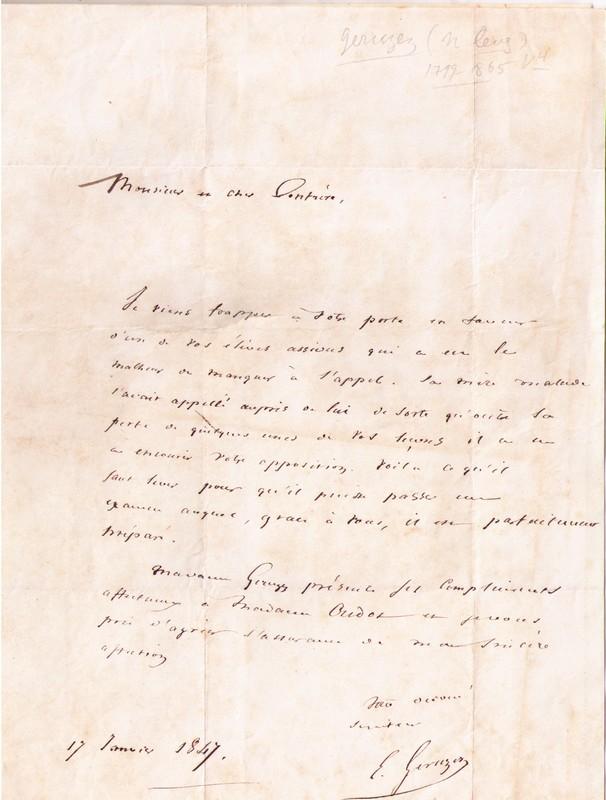 Geruzez (N Eug)
1799 1865
Monsieur et cher Confrère,
Je viens frapper à votre porte en faveur
d'un de vos élèves assidus qui a eu le
malheur de manquer à l'appel. Sa mère malade
l'avait appellé auprès de lui de sorte qu'outre la
perte de quelques unes de vos leçons il a eu
a encourir votre opposition. Voilà ce qu'il
faut lever pour qu'il puisse passer un
examen auquel, grace à vous, il est parfaitement
préparé.
Madame Geruzez présente ses compliments
affectueux à Madame Oudot et je vous
prie d'agréer l'assurance de mon sincère
affection
Votre dévoué
serviteur
E. Geruzez
17 Janvier 1847.